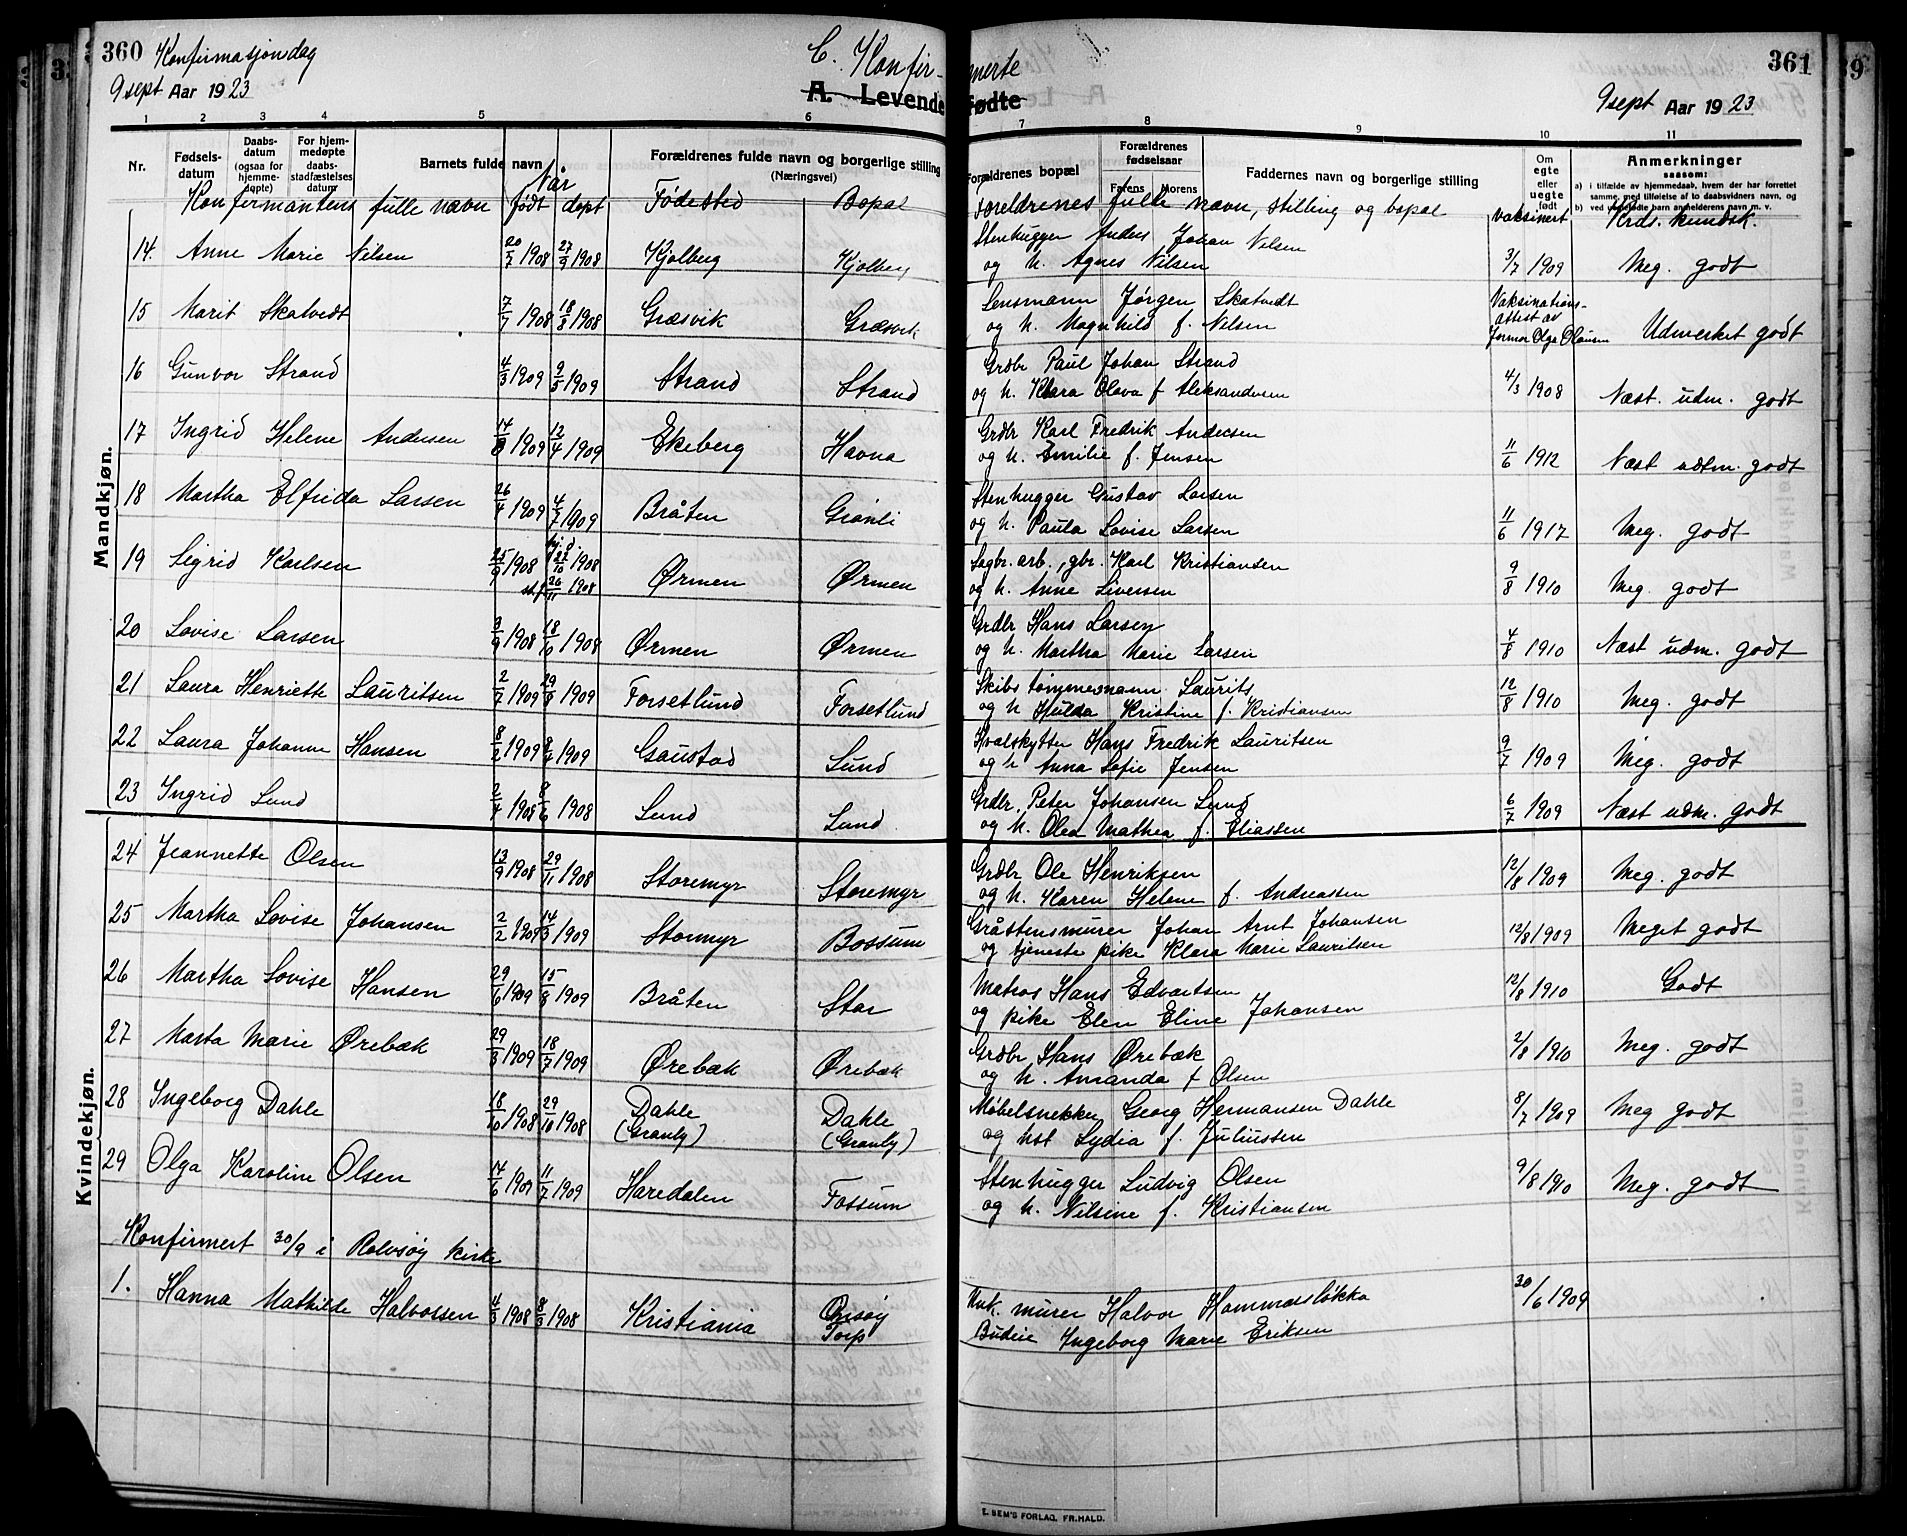 360 Konfirmasjonsdag
9 sept Aar 1923
C. Konfir-
A. Levende
1 2 3 4 5 6
Nr. Fødsels-datum Daabs-datum (ogsaa for hjemme-døpte) For hjem-medøpte daabs-stadfæstelses datum Barnets fulde navn Forældrenes fulde navn og borgerlige stilling (Næringsvei)
Konfirmantens fulle navn Når født døpt Fødested Bopæl
Mandkjøn.
14. Anne Marie Nilsen 20/7 1908 27/9 1908 Kjølberg Kjølberg
15 Marit Skatvedt 7/7 1908 18/8 1908 Græsvik Græsvik
16 Gunvor Strand 4/3 1909 9/5 1909 Strand Strand
17 Ingrid Helene Andersen 14/3 1909 12/4 1909 Ekeberg Havna
18 Martha Elfrida Larsen 26/4 1909 4/7 1909 Bråten Grønli
19 Sigrid Karlsen 25/9 1908 hjd. 22/10 1908 Ørmen Ørmen
st.f. 26/11 1908
20 Lovise Larsen 3/9 1908 18/10 1908 Ørmen Ørmen
21 Laura Henriette Lauritsen 2/7 1909 29/8 1909 Forsetlund Forsetlund
22 Laura Johanne Hansen 8/2 1909 8/4 1909 Gaustad Lund
23 Ingrid Lund 2/4 1908 8/6 1908 Lund Lund
Kvindekjøn.
24 Jeannette Olsen 13/9 1908 29/11 1908 Storemyr Storemyr
25 Martha Lovise Johansen 2/2 1909 14/3 1909 Stormyr Bossum
26 Martha Lovise Hansen 29/6 1909 15/8 1909 Bråten Star
27 Marta Marie Ørebæk 29/3 1909 18/7 1909 Ørebæk Ørebæk
28 Ingeborg Dahle 18/10 1908 29/10 1908 Dahle (Granly) Dahle (Granly)
29 Olga Karoline Olsen 14/6 1909 11/7 1909 Haredalen Fossum
Konfirmert 30/9 i Rolvsøy kirke
1. Hanna Mathilde Halvorsen 4/3 1908 8/3 1908 Kristiania Onsøy Torp
merte 361
Fødte
9 sept Aar 1923
7 8 9 10 11
Forældrenes bopæl Forældrenes fødselsaar Farens Morens Faddernes navn og borgerlige stilling Om egte eller uegte født Anmerkninger saasom:
a) i tilfælde av hjemmedaab, hvem der har forrettet samme, med tilføielse af to daabsvidners navn, og
b) ved uegtefødte barn anmelderens navn m. v.
Foreldrenes fulle navn, stilling og bopæl vaksinert Krds. kundsk.
Mandkjøn.
Stenhugger Anders Johan Nilsen
og h. Agnes Nilsen 3/7 1909 Meg. godt
Lensmann Jørgen Skatvedt Vaksinations-
og h. Magnhild f. Nilsen attest av
Jormor Olga Olausen Udmerket godt
Grdbr Paul Johan Strand
og h. Klara Olava f Aleksandersen 4/3 1908 Næst. udm. godt
Grdbr Karl Fredrik Andersen
og h. Emilie f. Jensen 11/6 1912 Næst udm. godt
Stenhugger Gustav Larsen
og h. Paula Lovise Larsen 11/6 1917 Meg. godt
Sagbr. arb., gbr. Karl Kristiansen
og h. Anne Siversen 9/8 1910 Meg. godt
Grdbr Hans Larsen
og h. Martha Marie Larsen 4/8 1910 Næst udm. godt
Skibstømmermann Laurits
og h Hulda Kristine f. Kristiansen 12/8 1910 Meg. godt
Hvalskytter Hans Fredrik Lauritsen
og h Anna Sofie Jensen 9/7 1909 Meg. godt
Grdbr. Peter Johansen Lund
og h. Olea Mathea f. Eliassen 6/7 1909 Næst udm. godt
Kvindekjøn.
Grdbr Ole Henriksen
og h. Karen Helene f. Andreassen 12/8 1909 Meg. godt
Gråstensmurer Johan Arnt Johansen
og tjeneste pike Klara Marie Lauritsen 12/8 1909 Meget godt
Matros Hans Edvartsen
og pike Elen Eline Johansen 12/8 1910 Godt
Grdbr Hans Ørebæk
og h. Amanda f Olsen 2/8 1910 Meg. godt
Møbelsnekker Georg Hermansen Dahle
og hst Lydia f. Juliussen 8/7 1909 Meg godt
Stenhugger Ludvig Olsen
og h. Nilsine f. Kristiansen 9/8 1910 Meg. godt
Unk. murer Halvor Hammersløkka
Budeie Ingeborg Marie Eriksen 30/6 1909
E. SEM'S FORLAG, FR.HALD.